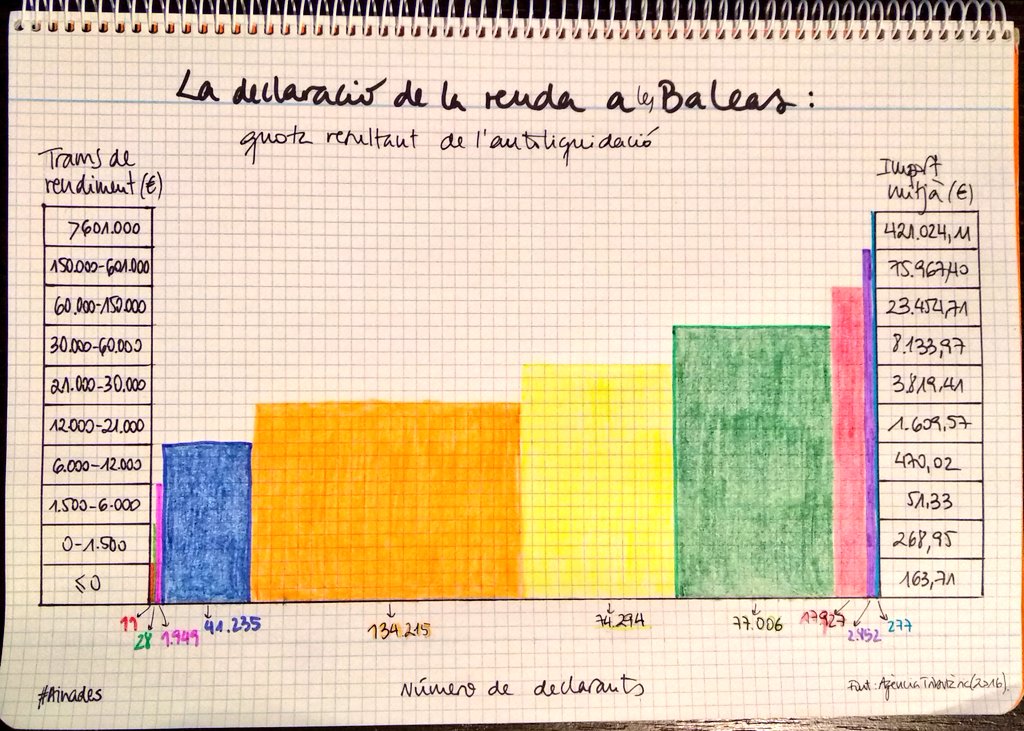 La declaració de la renda a les Balears:
quota resultant de l'autoliquidació
Trams de
rendiment (€)
Import
mitjà (€)
>601.000
421.024,11
150.000-601.000
75.967,40
60.000-150.000
23.454,71
30.000-60.000
8.133,97
21.000-30.000
3.819,41
12.000-21.000
1.609,57
6.000-12.000
470,02
1.500-6.000
51,33
0-1.500
268,95
≤0
163,71
11
28
1.949
41.235
134.215
74.294
77.006
17.927
2.452
277
#Ainades
Número de declarants
Font: Agència Tributària (2016).